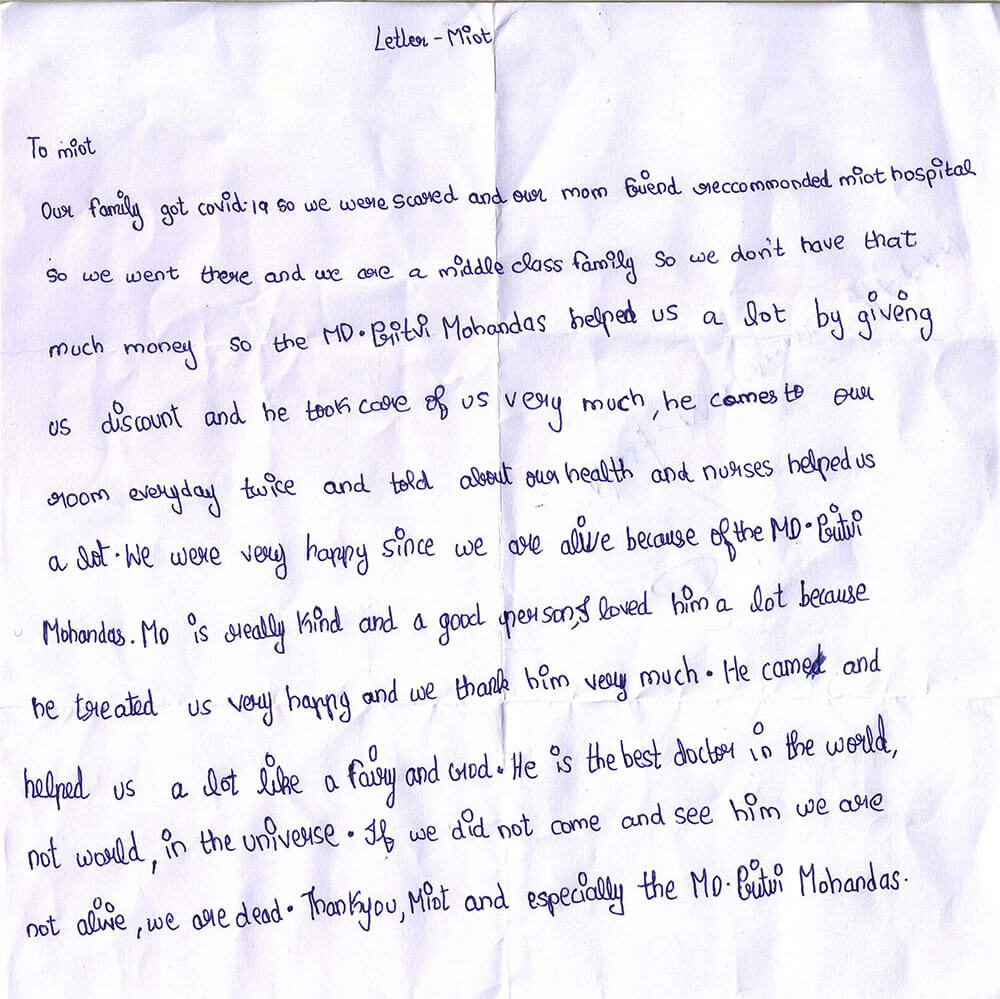 Letter - Miot
To miot
Our family got covid-19 so we were scared and our mom friend reccommonded miot hospital
so we went there and we are a middle class family so we don't have that
much money so the MD. Pritvi Mohandas helped us a lot by giveng
us discount and he took care of us very much, he comes to our
room everyday twice and told about our health and nurses helped us
a lot. We were very happy since we are alive because of the MD. Pritvi
Mohandas. MD is really kind and a good person, I loved him a lot because
he treated us very happy and we thank him very much. He came and
helped us a lot like a fairy and God. He is the best doctor in the world,
not world, in the universe. If we did not come and see him we are
not alive, we are dead. Thankyou, Miot and especially the MD. Pritvi Mohandas.